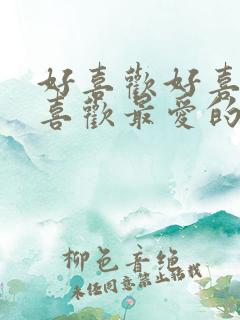 好喜歡好喜
喜歡最愛的
柳色音绝
未经同意禁止转载